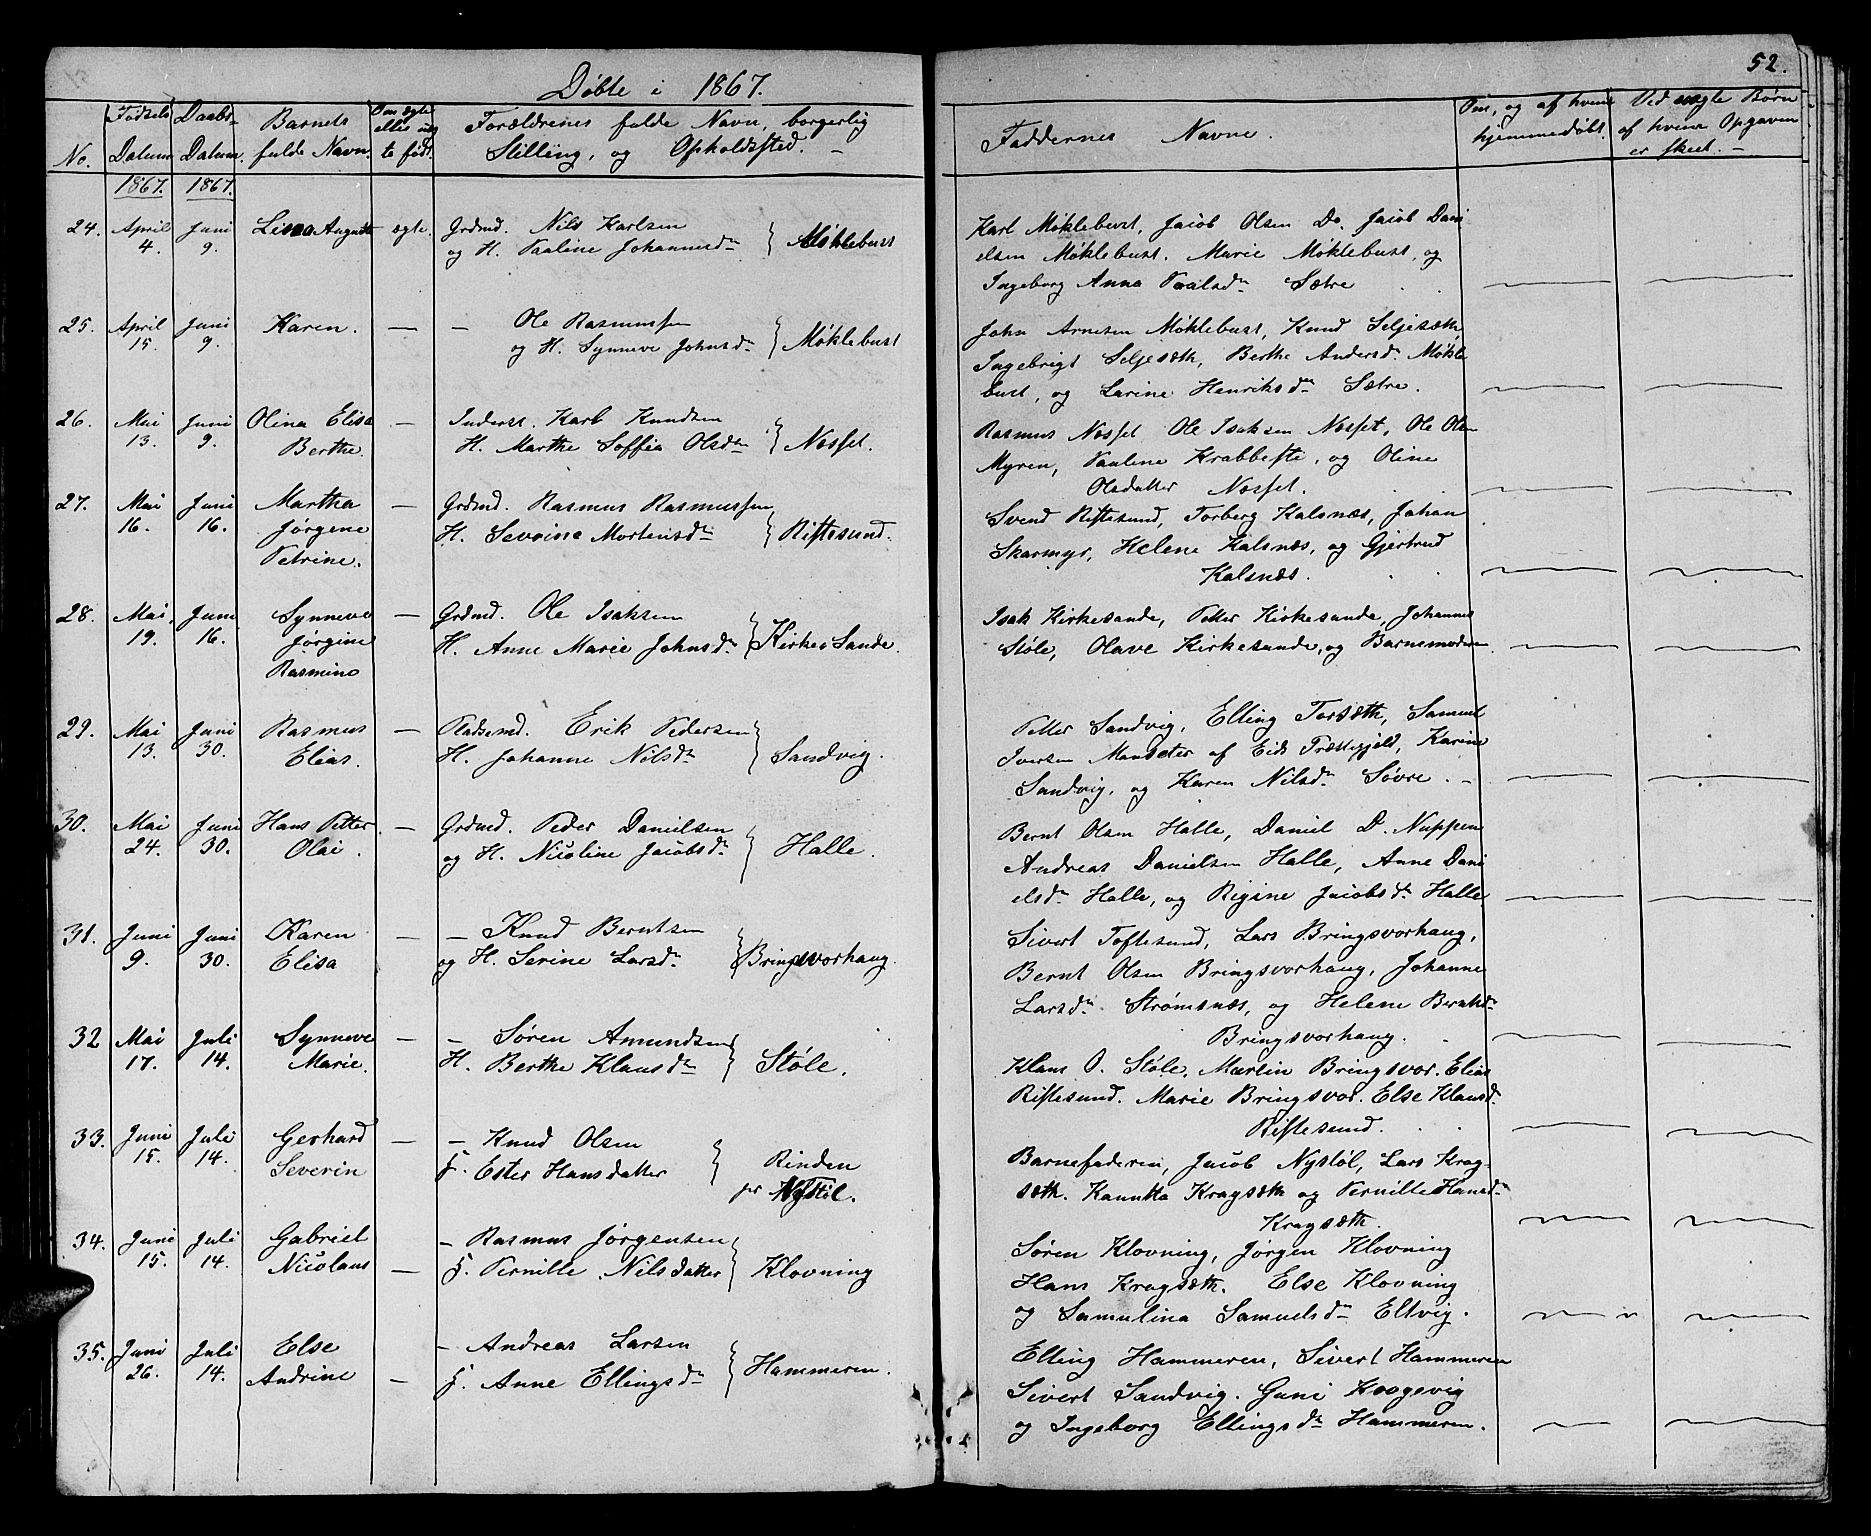 52.
Døbte i 1867.
No.
Fødsels Datum
Daabs- Datum.
Barnets fulde Navn.
Om ægte eller uægte født.
Forældrenes fulde Navn, borgerlig Stilling, og Opholdssted. -
Faddernes Navne.
Om, og af hvem hjemmedøbt.
Ved uægte Børn af hvem Opgaven er skeet. -
1867. 1867.
24. April 4. Juni 9. Auguste ægte. Grdmd. Nils Karlsen
og H. Pauline Johannesdr. Møklebust
Karl Møklebust, Jacob Olsen Do. Jacob Dani
elsen Møklebust. Marie Møklebust, og
Ingeborg Anna Paulsdr. Sætre
25. April 15. Juni 9. Karen. — — Ole Rasmussen
og H. Synneve Johnsdr. Møklebust
John Arnesen Møklebust, Knud Seljesæth,
Ingebrigt Seljesæth, Berthe Andersdr. Møkle
bust, og Larine Henriksdr. Sætre.
26. Mai 13. Juni 9. Olina Elisa Berthe. — Inderst. Karl Knudsen
H. Marthe Soffia Olsdr. Nosset.
Rasmus Nosset Ole Isaksen Nosset, Ole Olsen
Myren, Pauline Krabbeste, og Oline
Olsdatter Nosset.
27. Mai 16. Juni 16. Marthea Jørgene Petrine. — Grdmd. Rasmus Rasmussen
H. Severine Mortensdr. Riftesund.
Svend Riftesund, Torberg Kalsnæs, Johan
Skarmyr, Helene Kalsnæs, og Gjertrud
Kalsnæs.
28. Mai 19. Juni 16. Synneve Jørgine Rasmine — Grdmd. Ole Isaksen
H. Anne Marie Johnsdr. Kirke Sande.
Isak Kirkesande, Petter Kirkesande, Johannes
Støle, Olave Kirkesande, og Barnemoderen.
29. Mai 13. Juni 30. Rasmus Elias. — Pladsmd. Erik Pedersen
H. Johanne Nilsdr. Sandvig.
Petter Sandvig, Elling Torsæth, Samuel
Iversen Mandeter af Eids Præstegjeld, Karine
Sandvig, og Karen Nilsdr. Søvre. -
30. Mai 24. Juni 30. Hans Petter Olai. — Grdmd. Peder Danielsen
og H. Nicoline Jacobsdr. Halle.
Bernt Olsen Halle, Daniel D. Nuppen
Andreas Danielsen Halle, Anne Dani
elsdr. Halle, og Rigine Jacobsdr. Halle
31. Juni 9. Juni 30. Karen Elisa — — Knud Berntsen
og H. Serine Larsdr. Bringsvorhaug.
Sivert Toftesund, Lars Bringsvorhaug,
Bernt Olsen Bringsvorhaug, Johanne
Larsdr. Strømsnæs, og Helene Berntsdr.
Bringsvorhaug.
32 Mai 17. Juli 14. Synneve Marie. — — Søren Amundsen
H. Berthe Klausdr. Støle.
Klaus O. Støle, Martin Bringsvor. Elias
Riftesund. Marie Bringsvor. Else Klausdr.
Riftesund.
33. Juni 15. Juli 14. Gerhard Severin — — Knud Olsen
H. Ester Hansdatter Rinden
per Nystøl.
Barnefaderen, Jacob Nystøl, Lars Krag-
sæth. Kanutta Kragsæth og Pernille Hansdr.
Kragsæth.
34. Juni 15. Juli 14. Gabriel Nicolaus — — Rasmus Jørgensen
H. Pernille Nilsdatter Klovning
Søren Klovning, Jørgen Klovning
Hans Kragsæth. Else Klovning
og Samulina Samuelsdr. Eltvig.
35. Juni 26. Juli 14. Else Andrine — — Andreas Larsen
H. Anne Ellingsdr. Hammeren.
Elling Hammeren, Sivert Hammeren
Sivert Sandvig. Guni Kragevig
og Ingeborg Ellingsdr. Hammeren.